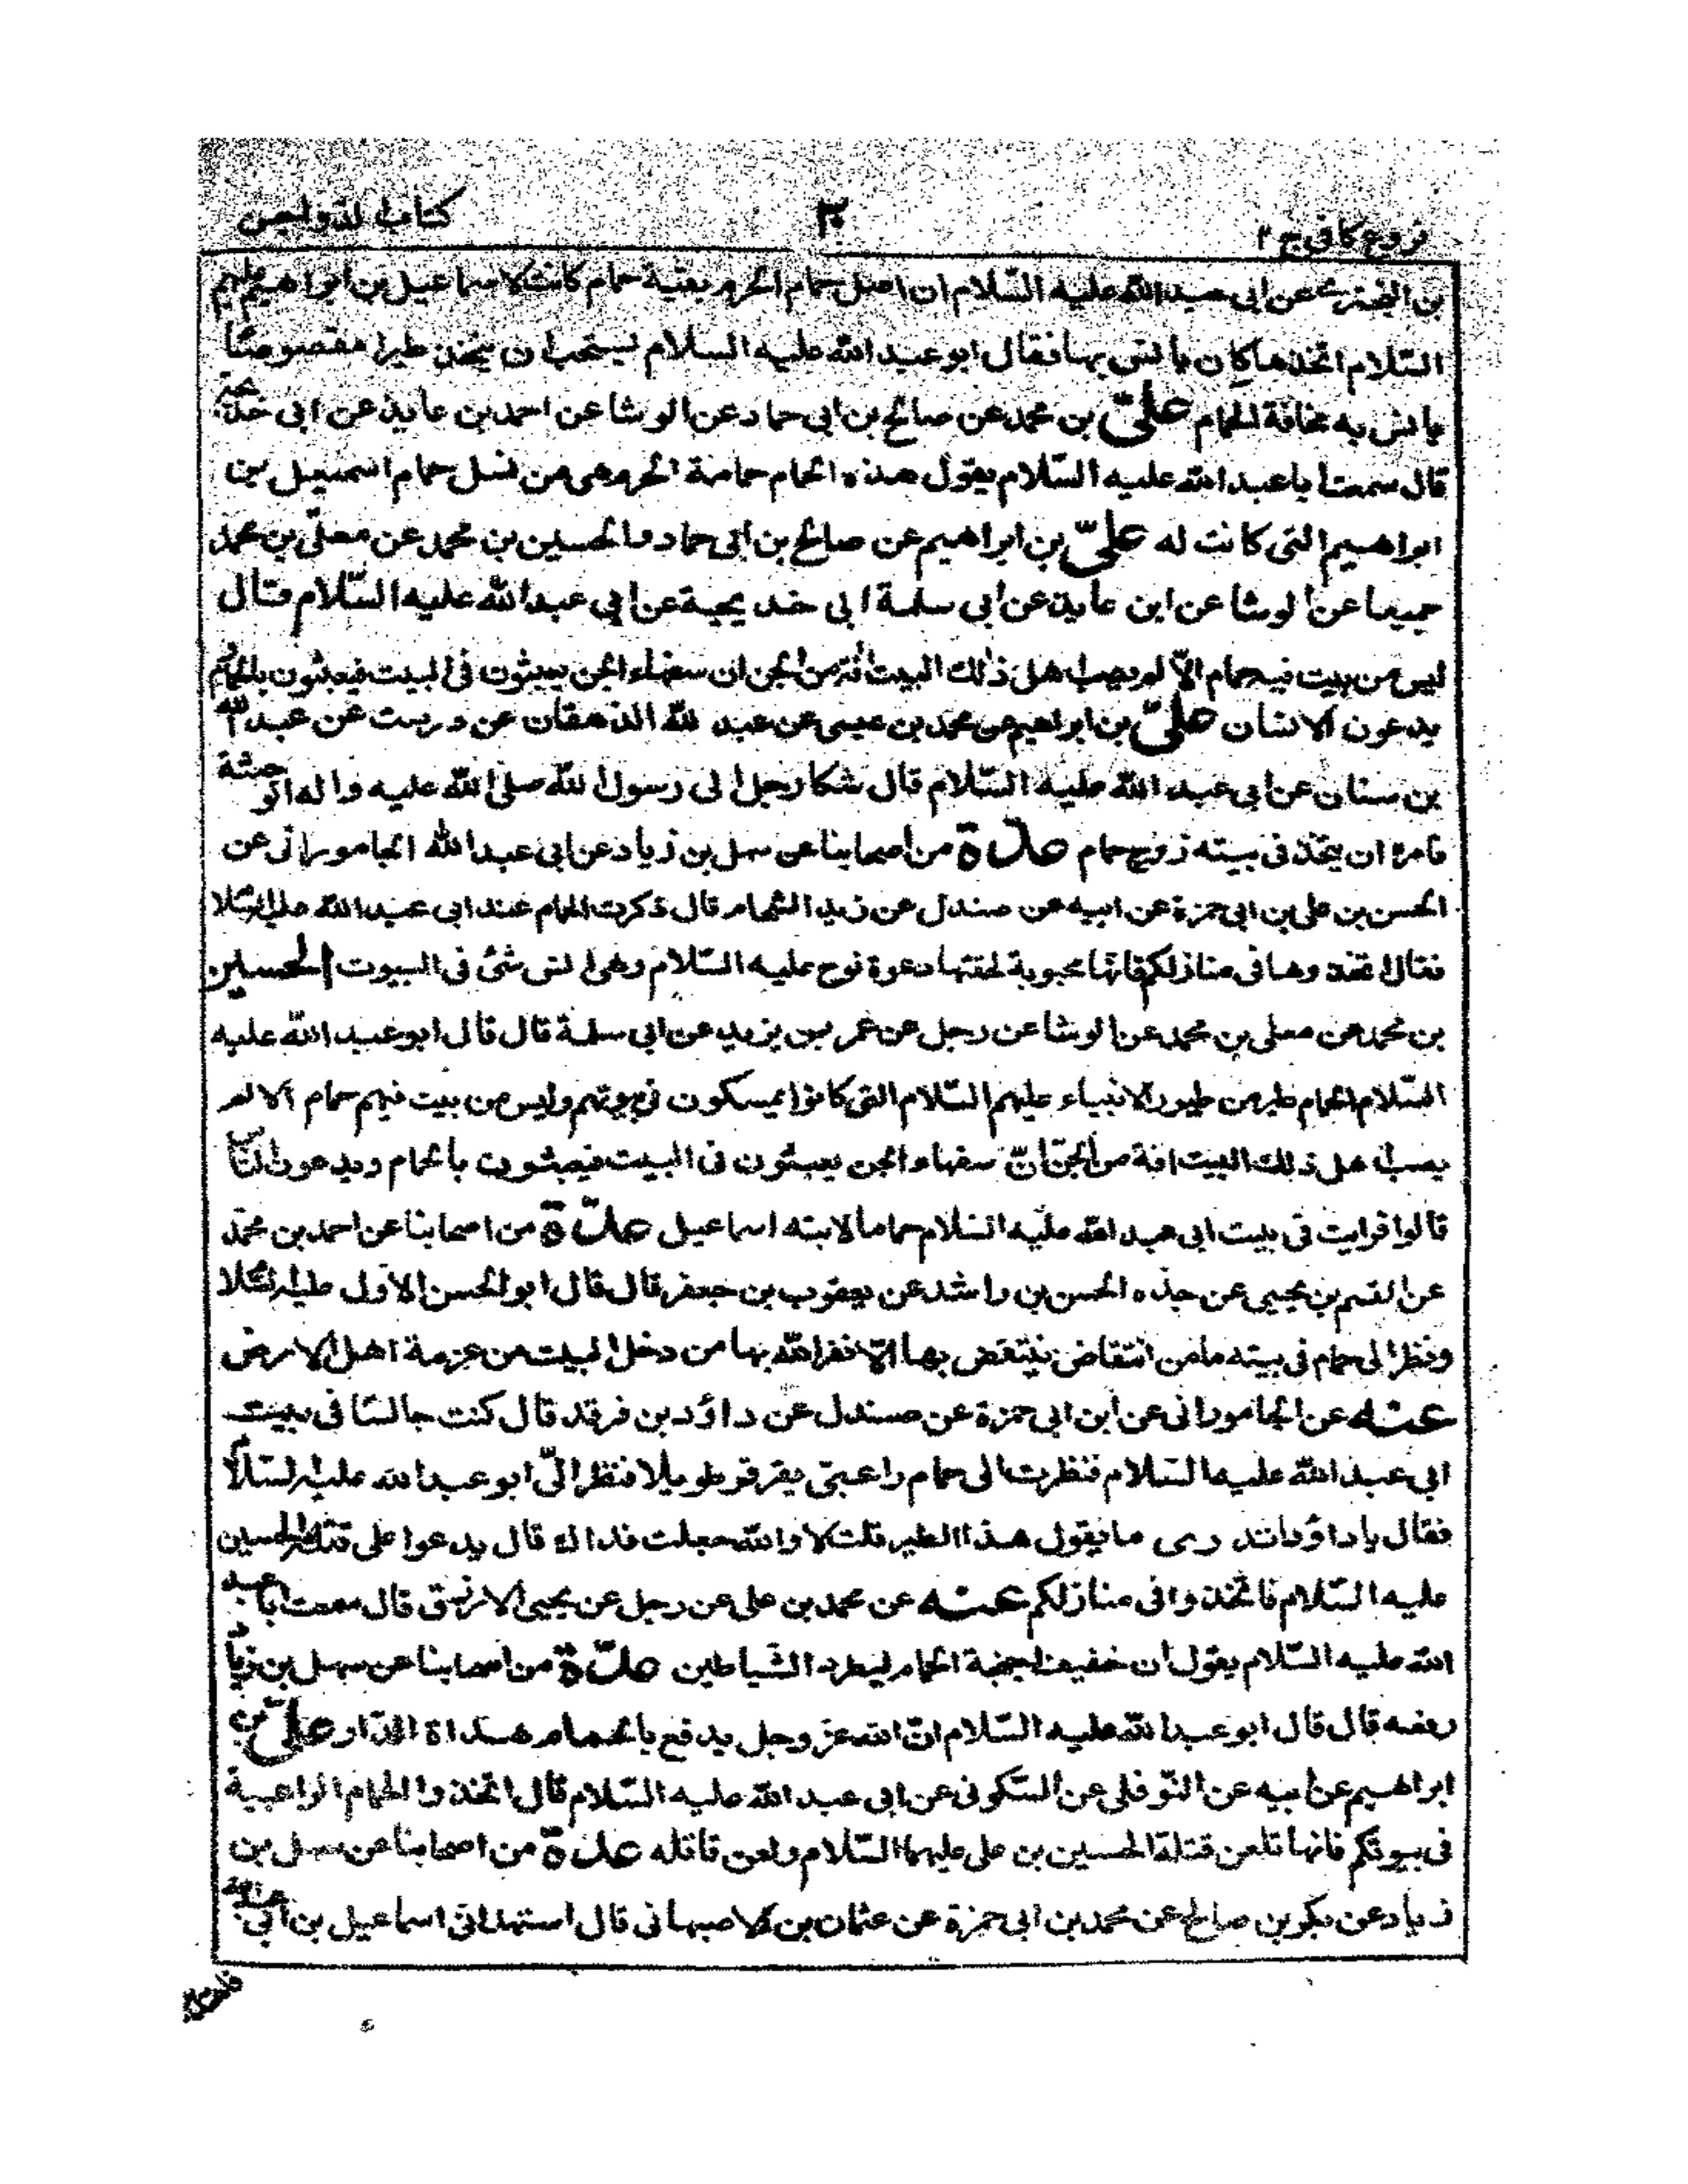 فروع كافي ج ٢
٣
كتاب الدواجن
بن البختري عن ابي عبد الله عليه السّلام ان اصل حمام الحرم بقية حمام كانت لاسماعيل بن ابراهيم عليهم
السّلام اتخذها كان يانس بها فقال ابو عبد الله عليه السلام ليستحب ان يتخذ طيرا مقصوصًا
يانس به مخافة الهوام عليّ بن محمد عن صالح بن ابي حماد عن الوشا عن احمد بن عايذ عن ابي خديجة
قال سمعت ابا عبد الله عليه السّلام يقول هذه الحمام حمامة الحرم هى من نسل حمام اسمعيل بن
ابراهيم التى كانت له عليّ بن ابراهيم عن صالح بن ابى حماد والحسين بن محمد عن معلّى بن محمد
جميعا عن الوشا عن ابن عايذ عن ابى سلمة ابى خديجة عن ابي عبد الله عليه السّلام قال
ليس من بيت فيه حمام الاّ لم يصب اهل ذلك البيت افة من الجن ان سفهاء الجن يعبثون فى البيت فيعبثون بالحمام
يدعون الانسان عليّ بن ابراهيم عن محمد بن عيسى عن عبيد الله الدهقان عن درست عن عبد الله
بن سنان عن ابي عبد الله عليه السّلام قال شكا رجل الى رسول الله صلى الله عليه واله الوحشة
فامره ان يتخذ فى بيته زوج حمام عدّة من اصحابنا عن سهل بن زياد عن ابي عبد الله الجامورانى عن
الحسن بن على بن ابى حمزة عن ابيه عن صندل عن زيد الشحام قال ذكرت الحمام عند ابى عبد الله عليه السّلام
فقال اتخذوها فى منازلكم فانّها محبوبة لحقتها دعوة نوح عليه السّلام وهى انس شئ فى البيوت الحسين
بن محمد عن معلى بن محمد عن الوشا عن رجل عن عمر بن يزيد عن ابي سلمة قال قال ابو عبد الله عليه
السّلام الحمام طير من طيور الانبياء عليهم السّلام التى كانوا يمسكون فى بيوتهم وليس من بيت فيهم حمام الا لم
يصب اهل ذلك البيت افة من الجن انّ سفهاء الجن يعبثون فى البيت فيعبثون بالحمام ويدعون الناس
قالوا فرايت فى بيت ابى عبد الله عليه السّلام حماما لابنه اسماعيل عدّة من اصحابنا عن احمد بن محمّد
عن القسم بن يحيى عن جدّه الحسن بن راشد عن يعقوب بن جعفر قال قال ابو الحسن الاوّل عليه السّلام
ونظر الى حمام فى بيته ما من انتقاض ينتقض بها الاّ نفر الله بها من دخل البيت من عزمة اهل الارض
عنه عن الجامورانى عن ابن ابى حمزة عن صندل عن داؤد بن فرقد قال كنت جالسًا فى بيت
ابى عبد الله عليه السّلام فنظرت الى حمام راعبىّ يقرقر طويلا فنظر الىّ ابو عبد الله عليه السّلام
فقال يا داؤد اتدرى ما يقول هذا الطير قلت لا والله جعلت فداك قال يدعوا على قتلة الحسين
عليه السّلام فاتّخذوا فى منازلكم عنه عن محمد بن على عن رجل عن يحيى الازرق قال سمعت ابا عبد
الله عليه السّلام يقول ان خفيف اجنحة الحمام ليطرد الشّياطين عدّة من اصحابنا عن سهل بن زياد
رفعه قال قال ابو عبد الله عليه السّلام انّ الله عزّ وجل يدفع بالحمام هدة الدّار عليّ بن
ابراهيم عن ابيه عن النّوفلي عن السّكونى عن ابى عبد الله عليه السّلام قال اتخذوا الحمام الراعبية
فى بيوتكم فانها تلعن قتلة الحسين بن على عليهما السّلام ولعن قاتله عدّة من اصحابنا عن سهل بن
زياد عن بكر بن صالح عن محمد بن ابى حمزة عن عثمان بن الاصبهانى قال استهدانى اسماعيل بن ابى عبد الله